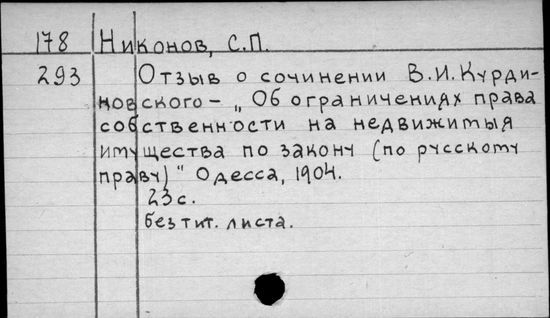 178 Никонов, С.П.
293 Отзыв о сочинении В.И.Курди-
новского - „Об ограничениях права
собственности на недвижимыя
имущества по закону (по русскому
праву)" Одесса, 1904.
23с.
без тит. листа.